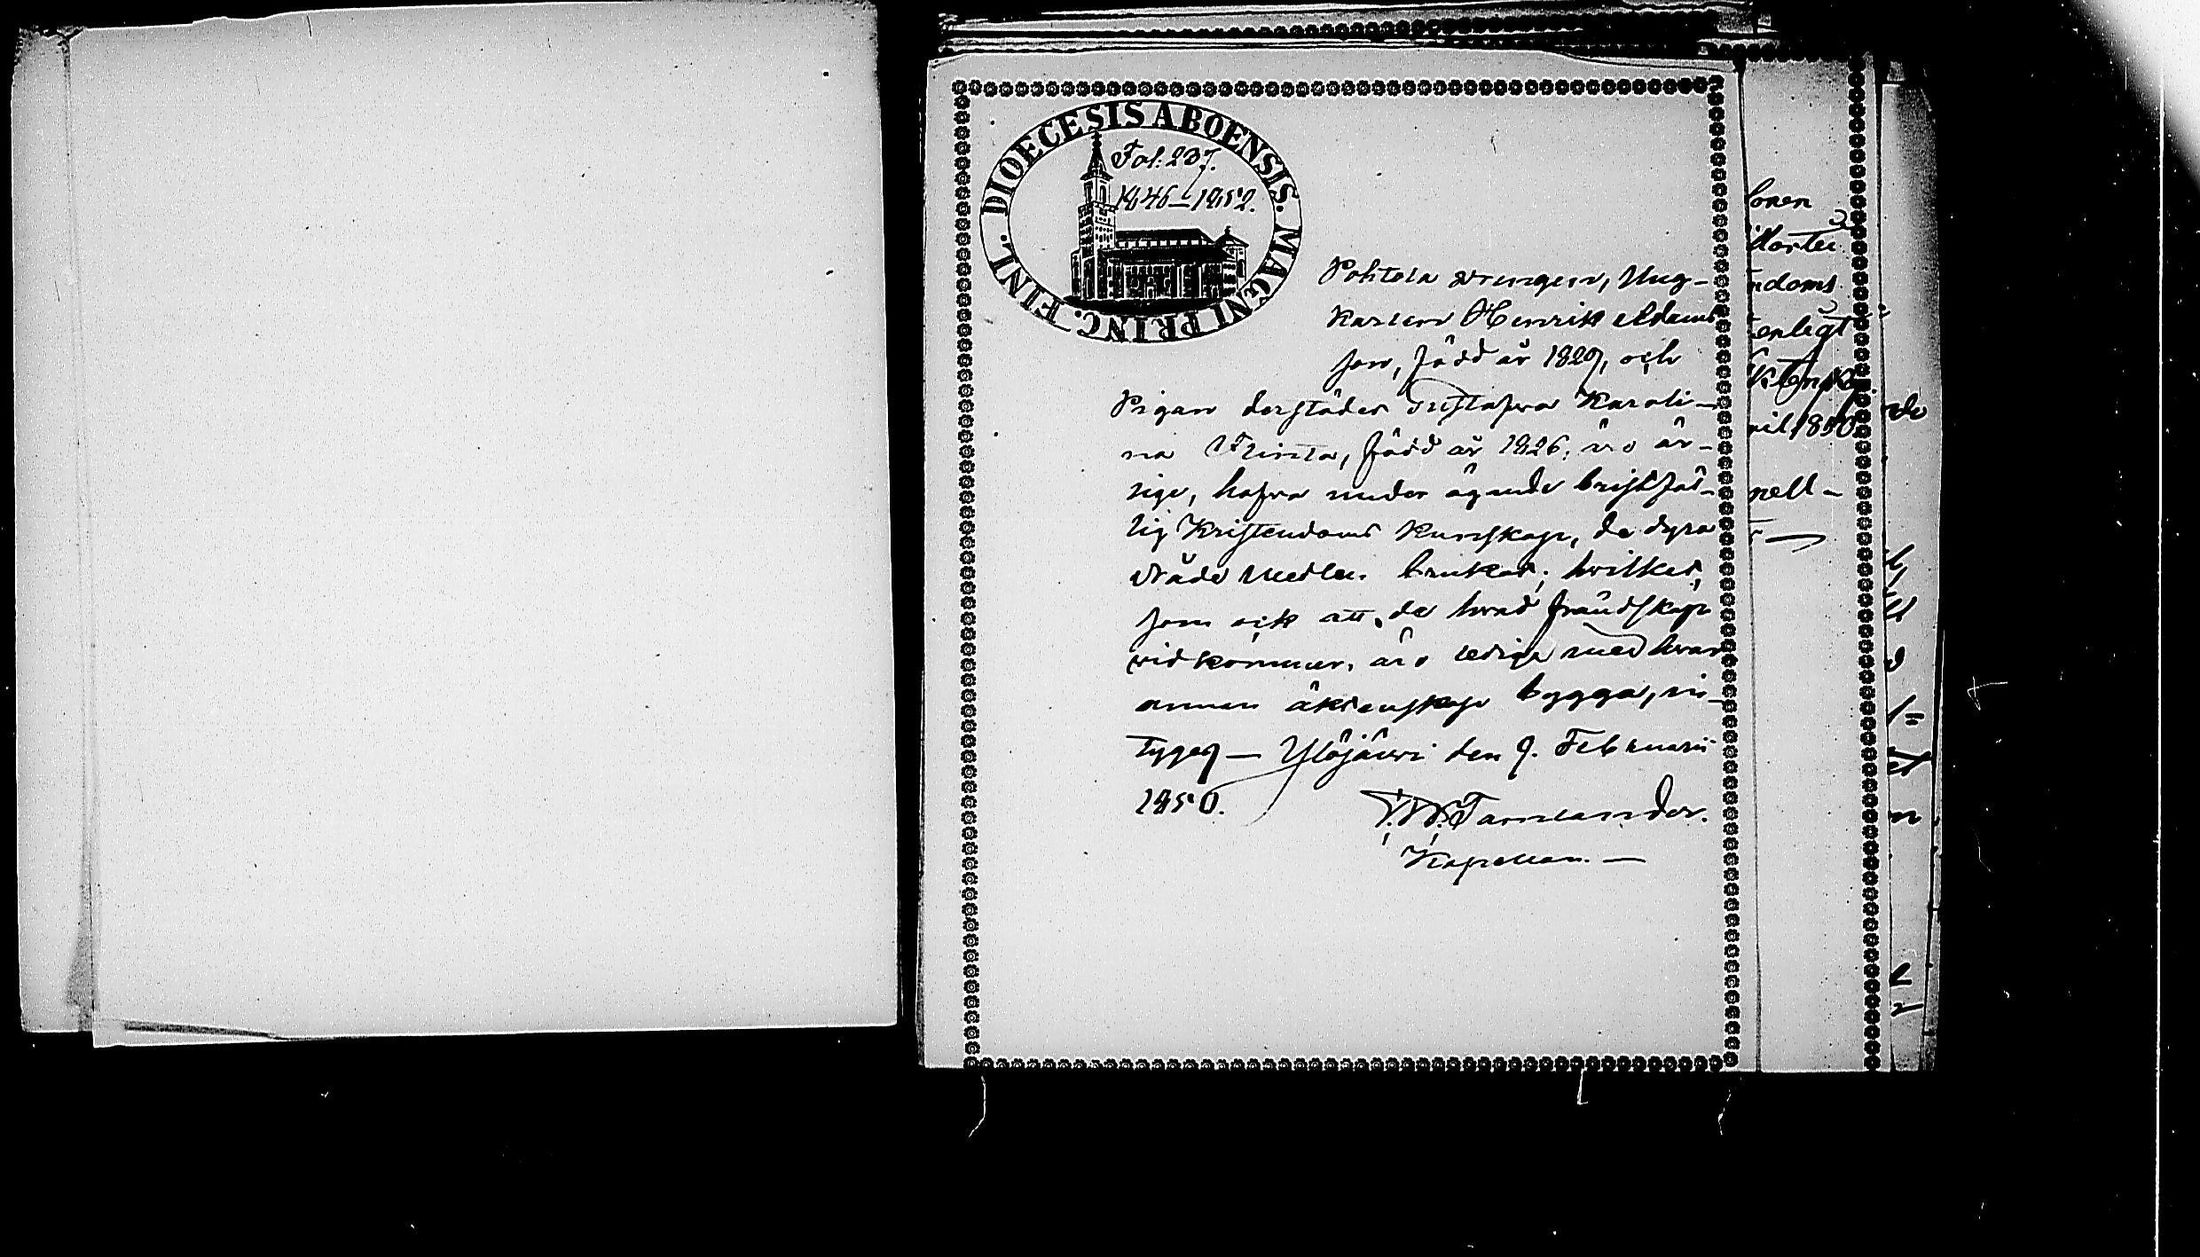 DIOECESIS ABOENSIS. MAGNI PRINC. FINL.
Fol: 237.
1846–1852.
Pohtola drengen, Ung-
karlen Henrik Adams
son, född år 1829, och
Pigan derstädes Gustafva Karoli-
na, född år 1826, äro är-
lige, hafva under ägande bristfäl-
lig Kristendoms kunskap, de dyra
Nåde Medlen brukat; hvilket,
som ock att de hvad frändskap
vidkommer, äro ledige med hvar
annan äktenskap bygga, in-
tygas — Ylöjärvi den 9. Februarii
1850.
Tamlander.
Kapellan. —
onen
ndoms
enligt
ril 1850
pell-